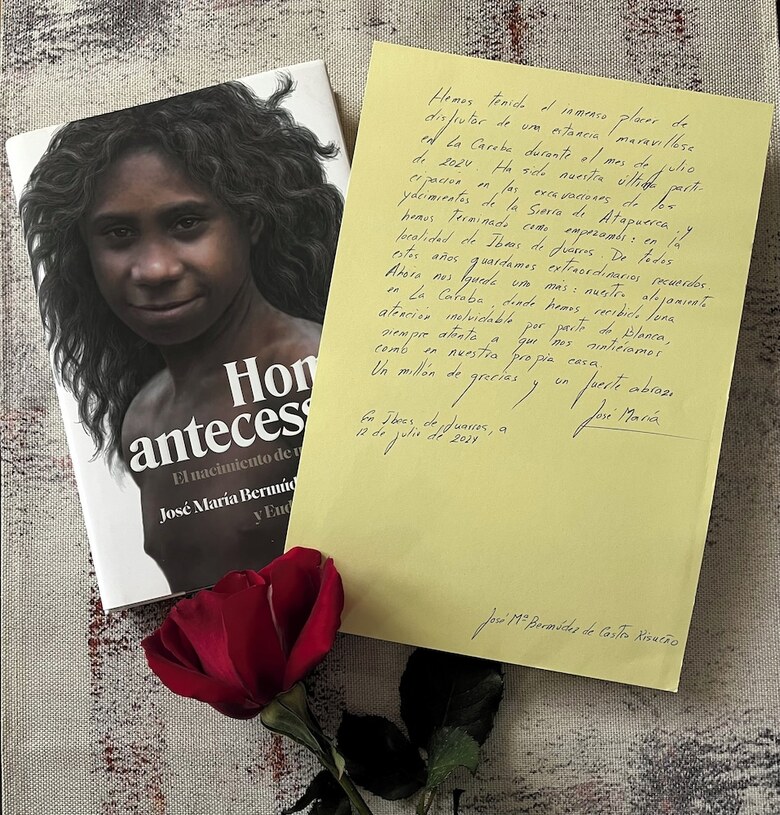 Homo
antecess
El nacimiento de u
José María Bermúd
y Eud
Hemos tenido el inmenso placer de
disfrutar de una estancia maravillosa
en La Caraba durante el mes de julio
de 2024. Ha sido nuestra última parti-
cipación en las excavaciones de los
yacimientos de la Sierra de Atapuerca, y
hemos terminado como empezamos: en la
localidad de Ibeas de Juarros. De todos
estos años guardamos extraordinarios recuerdos.
Ahora nos queda uno más: nuestro alojamiento
en La Caraba, donde hemos recibido una
atención inolvidable por parte de Blanca,
siempre atenta a que nos sintiéramos
como en nuestra propia casa.
Un millón de gracias y un fuerte abrazo
José María
En Ibeas de Juarros, a
12 de julio de 2024
José Mª Bermúdez de Castro Risueño